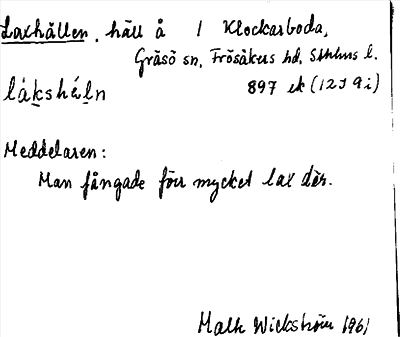 Laxhällen, häll å 1 Klockarboda,
Gräsö sn, Frösåkers hd, Sthlms l.
lákshä̀ln 897 ek (12J 9i)
Meddelaren:
Man fångade förr mycket lax där.
Malte Wickström 1961